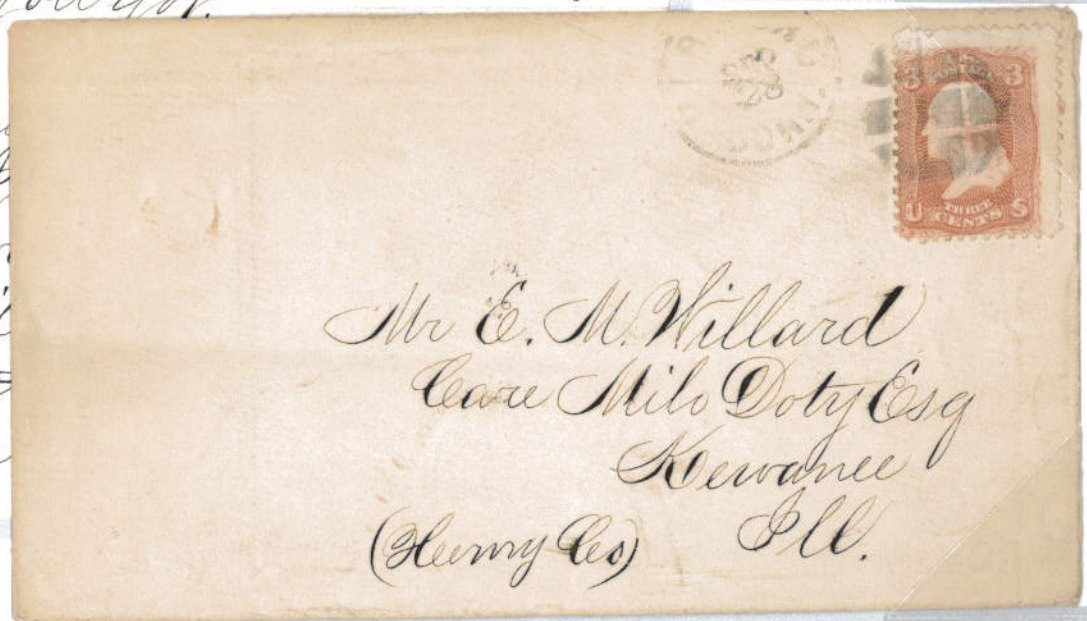 3 3
U THREE CENTS S
CONN.
Mr E. M. Willard
Care Milo Doty Esq
Kewanee
(Henry Co) Ill.